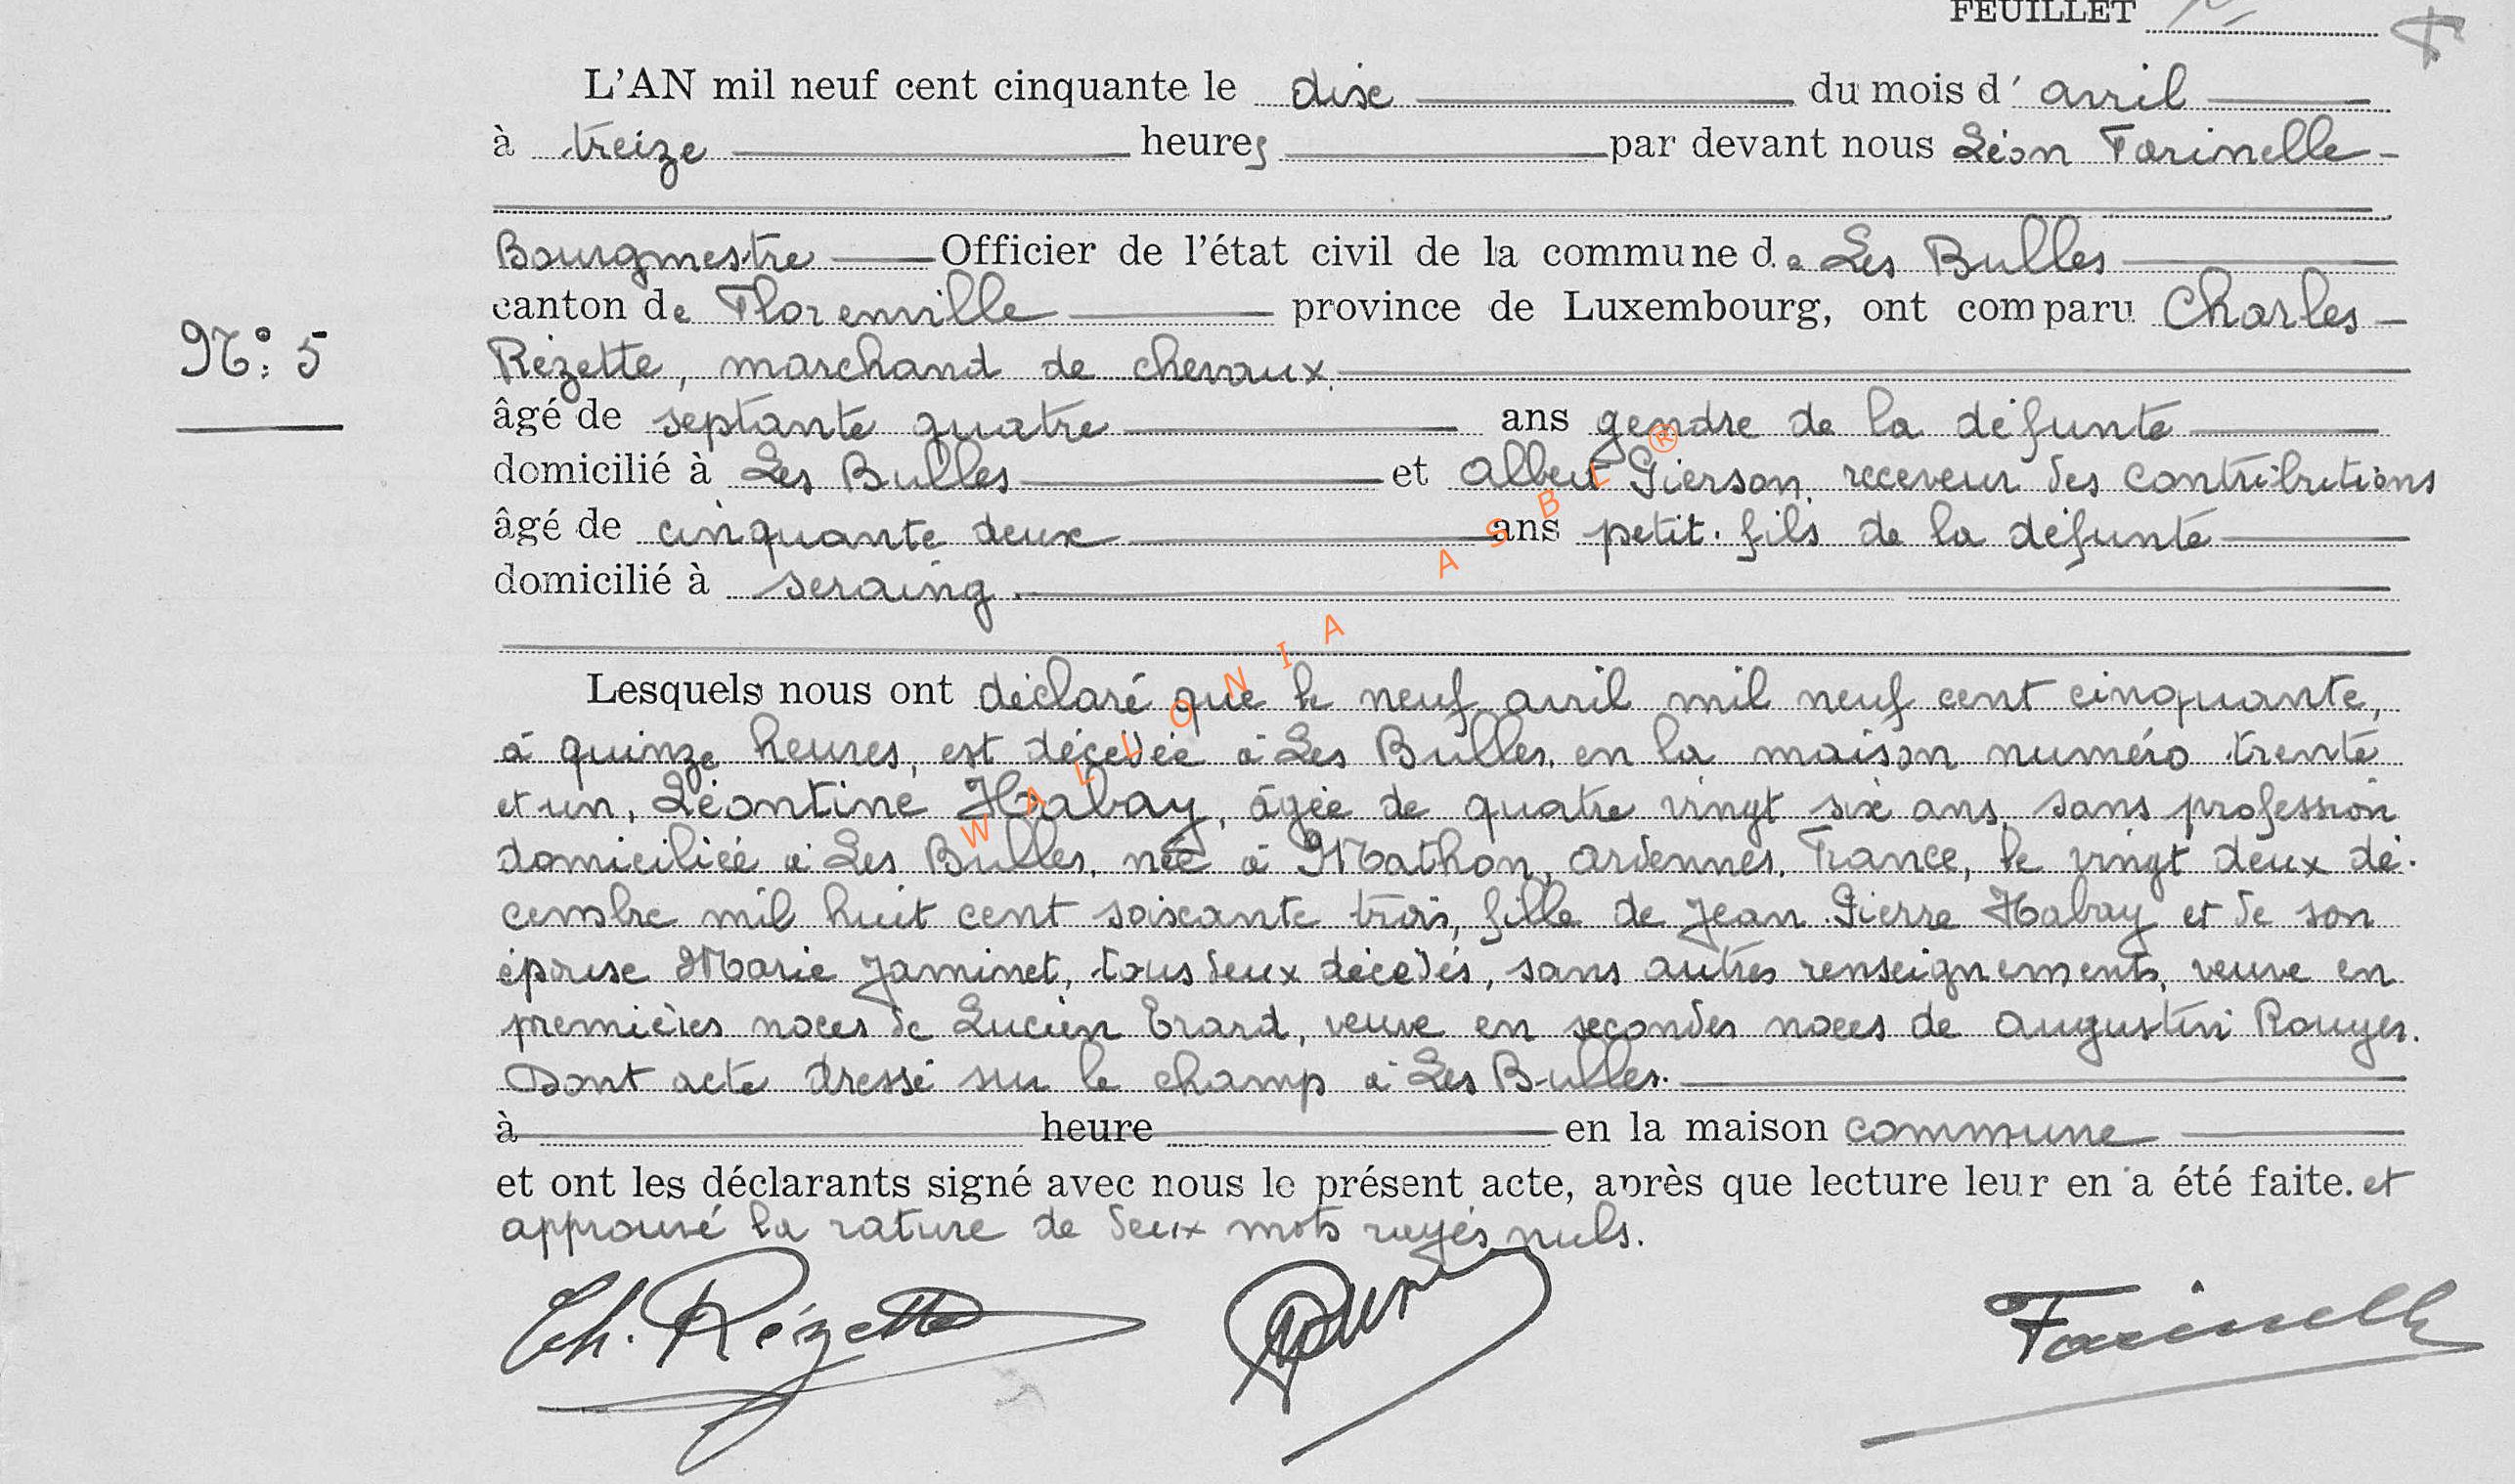 FEUILLET
L'AN mil neuf cent cinquante le dix du mois d' avril
à treize heures par devant nous Léon Farinelle
Bourgmestre Officier de l'état civil de la commune de Les Bulles
canton de Florenville province de Luxembourg, ont comparu Charles
N°: 5
Rézette, marchand de chevaux.
âgé de septante quatre ans gendre de la défunte
domicilié à Les Bulles et Albert Pierson, receveur des contributions
âgé de cinquante deux ans petit-fils de la défunte
domicilié à Seraing.
Lesquels nous ont déclaré que le neuf avril mil neuf cent cinquante,
à quinze heures, est décédée à Les Bulles, en la maison numéro trente
et un, Léontine Habay, âgée de quatre vingt six ans, sans profession
domiciliée à Les Bulles, née à Mathon, Ardennes, France, le vingt deux dé-
cembre mil huit cent soixante trois, fille de Jean-Pierre Habay et de son
épouse Marie Jaminet, tous deux décédés, sans autres renseignements, veuve en
premières noces de Lucien Erard, veuve en secondes noces de Augustin Rouyer.
Dont acte dressé sur le champ à Les Bulles.
à heure en la maison commune
et ont les déclarants signé avec nous le présent acte, après que lecture leur en a été faite. et
approuvé la rature de deux mots rayés nuls.
Ch. Rézette Farinelle
WALLONIA ASBL ®